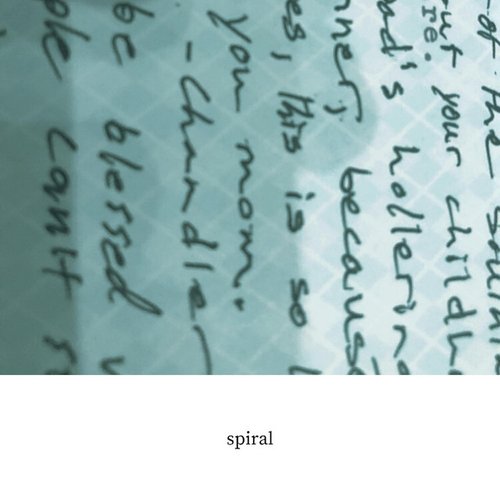 of the
re.
your childh
ad's hollerin
nner, because
es, this is so
you mom.
- Chandler
be blessed
ple can't
spiral